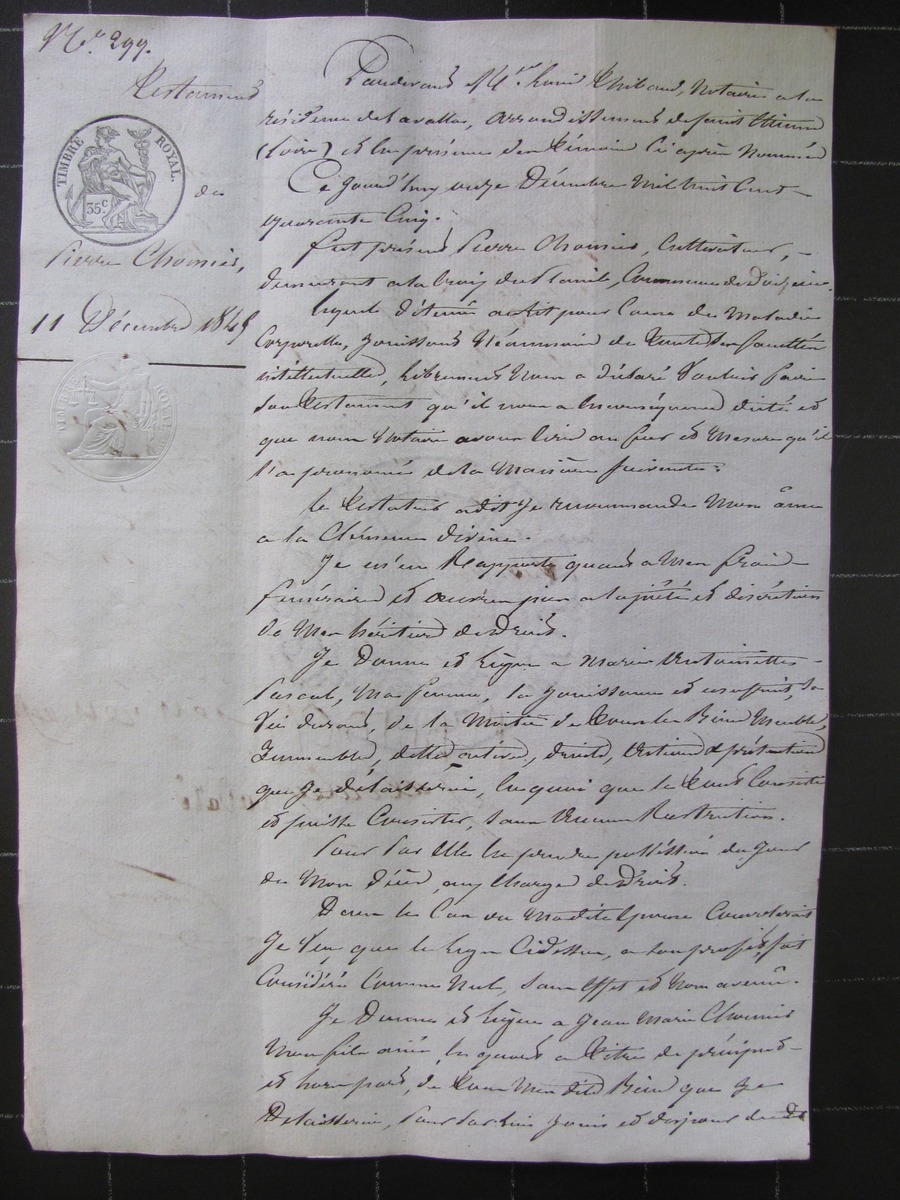 N.o 299.
Testament
TIMBRE ROYAL.
35 c.
de
Pierre Chomier,
11 Décembre 1845
Pardevant M.tre Thibaud, Notaire a la
résidence de Lavalla, arrondissement de Saint Etienne
(Loire) et en présence des témoins ci après nommés
Ce jourd'huy onze Décembre mil huit cent
quarante cinq.
fut présent Pierre Chomier, cultivateur,
demeurant a la Croix du Commune de Doizieu.
Lequel détenu au lit pour cause de maladie
Corporelle, jouissant néanmoins de toutes ses facultés
intellectuelles, librement nous a déclaré vouloir faire
son testament qu'il nous a en conséquence dicté et
que nous notaire avons écrit au fur et mesure qu'il
l'a prononcé de la manière suivante:
Le testateur a dit Je recommande mon âme
a la Clémence divine.
Je m'en Rapporte quant a mes frais
funéraires et œuvres pies a la piété et discrétion
de mes héritiers de droit.
Je Donne et Lègue a Marie Antoinette
Pascal, ma femme, la jouissance et usufruit, sa
vie durant, de la moitié de tous les Biens Meubles,
Immeubles, dettes actives, droits, actions & prétentions
que je délaisserai, en quoi que le tout Consiste
et puisse Consister, sans aucune Restriction.
Pour par elle en prendre possession du jour
de mon décès, aux charges de droit.
Dans le Cas ou madite épouse Convolerait
Je veux que le Legs Cidessus, a son profit, soit
Considéré Comme nul, sans effet et non avenu.
Je Donne et Lègue a Jean Marie Chomier
mon fils ainé, le quart a titre de préciput
et hors part, de tous mesdits Biens que je
Délaisserai, Pour par lui jouir et disposer dudt